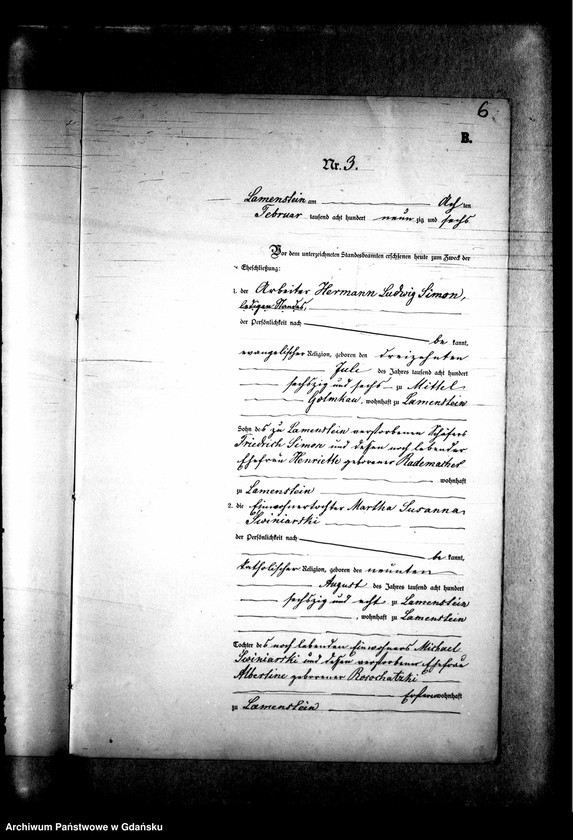 6
B.
Nr. 3.
Lamenstein am Acht ten
Februar tausend acht hundert neunzig und sechs
Vor dem unterzeichneten Standesbeamten erschienen heute zum Zweck der
Eheschließung:
1. der Arbeiter Hermann Ludwig Simon,
ledigen Standes,
der Persönlichkeit nach
be kannt,
evangelischer Religion, geboren den dreizehnten
Juli des Jahres tausend acht hundert
sechszig und sechs zu Mittel
Golmkau, wohnhaft zu Lamenstein
Sohn des zu Lamenstein verstorbenen Schäfers
Friedrich Simon und dessen noch lebender
Ehefrau Henriette geborener Rademacher
wohnhaft
zu Lamenstein
2. die Einwohnertochter Martha Susanna
Swiniarski
der Persönlichkeit nach
be kannt,
katholischer Religion, geboren den neunten
August des Jahres tausend acht hundert
sechszig und acht zu Lamenstein
, wohnhaft zu Lamenstein
Tochter des noch lebenden Einwohners Michael
Swiniarski und dessen verstorbener Ehefrau
Albertine geborener Rosochatzki
Ersterer wohnhaft
zu Lamenstein
Archiwum Państwowe w Gdańsku